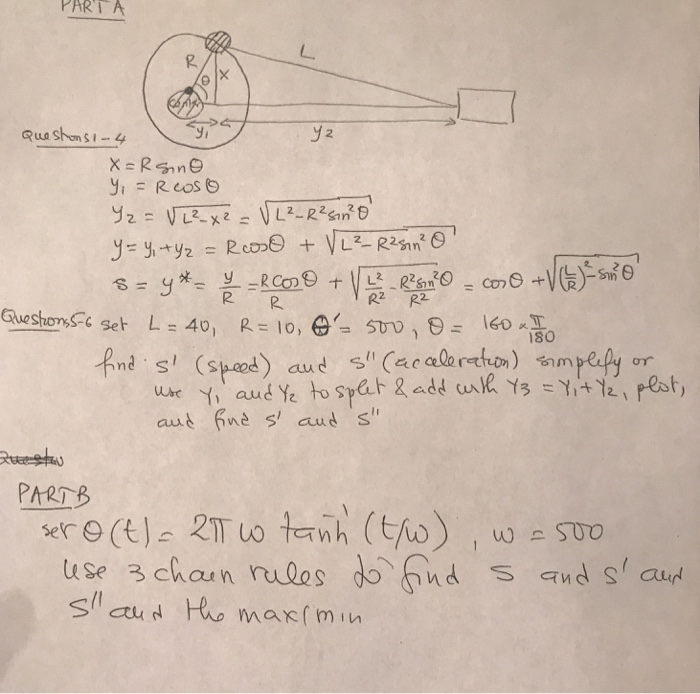 PART A
L
R
θ
x
y₁
y₂
Questions 1-4
x = R sinθ
y₁ = R cosθ
y₂ = √(L²-x²) = √(L²-R²sin²θ)
y = y₁+y₂ = R cosθ + √(L²-R²sin²θ)
s = y* = y/R = R cosθ/R + √(L²/R² - R²sin²θ/R²) = cosθ + √((L/R)²-sin²θ)
Questions 5-6 set L = 40, R = 10, θ' = 500, θ = 160 × π/180
find s' (speed) and s'' (acceleration) simplify or
use Y₁ and Y₂ to split & add with Y3 = Y₁+Y₂, plot,
and find s' and s''
PART B
set θ(t) = 2π ω tanh⁻¹(t/ω), ω = 500
use 3 chain rules to find s and s' and
s'' and the max/min